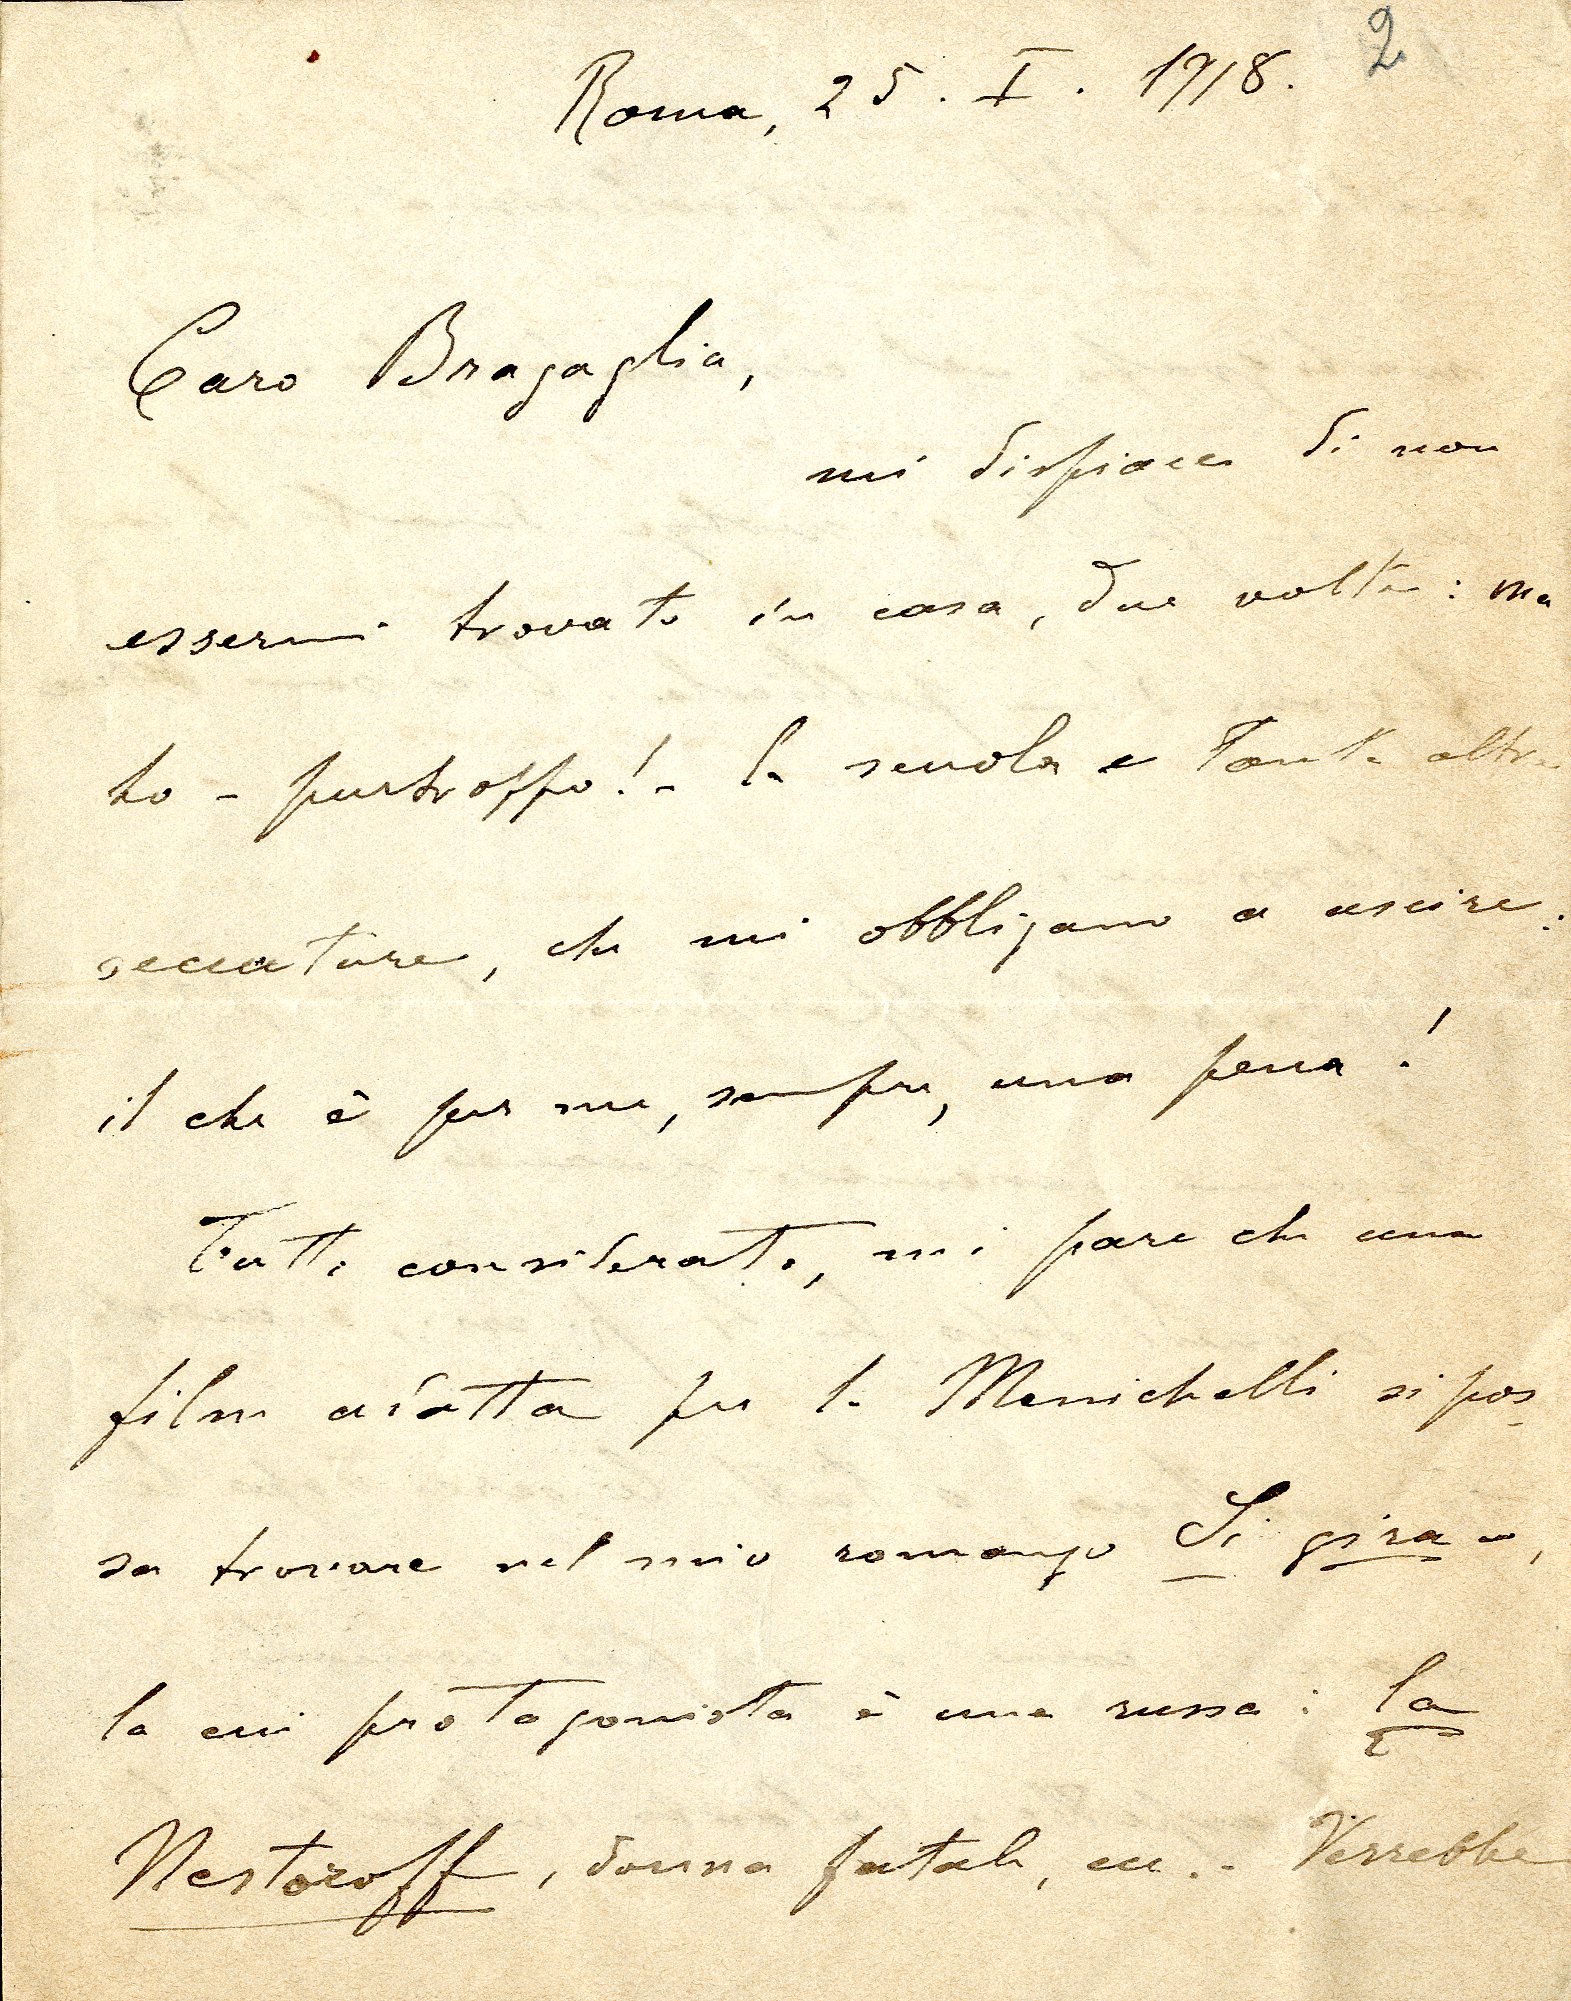 2
Roma, 25. I. 1918.
Caro Bragaglia,
mi dispiace di non
essermi trovato in casa, due volte: ma
ho - purtroppo! - la scuola e tante altre
seccature, che mi obbligano a uscire:
il che è per me, sempre, una pena!
Tutto considerato, mi pare che una
film adatta per la Menichelli si pos-
sa trovare nel mio romanzo Si gira...,
la cui protagonista è una russa: la
Nestoroff, donna fatale, ecc. - Verrebbe